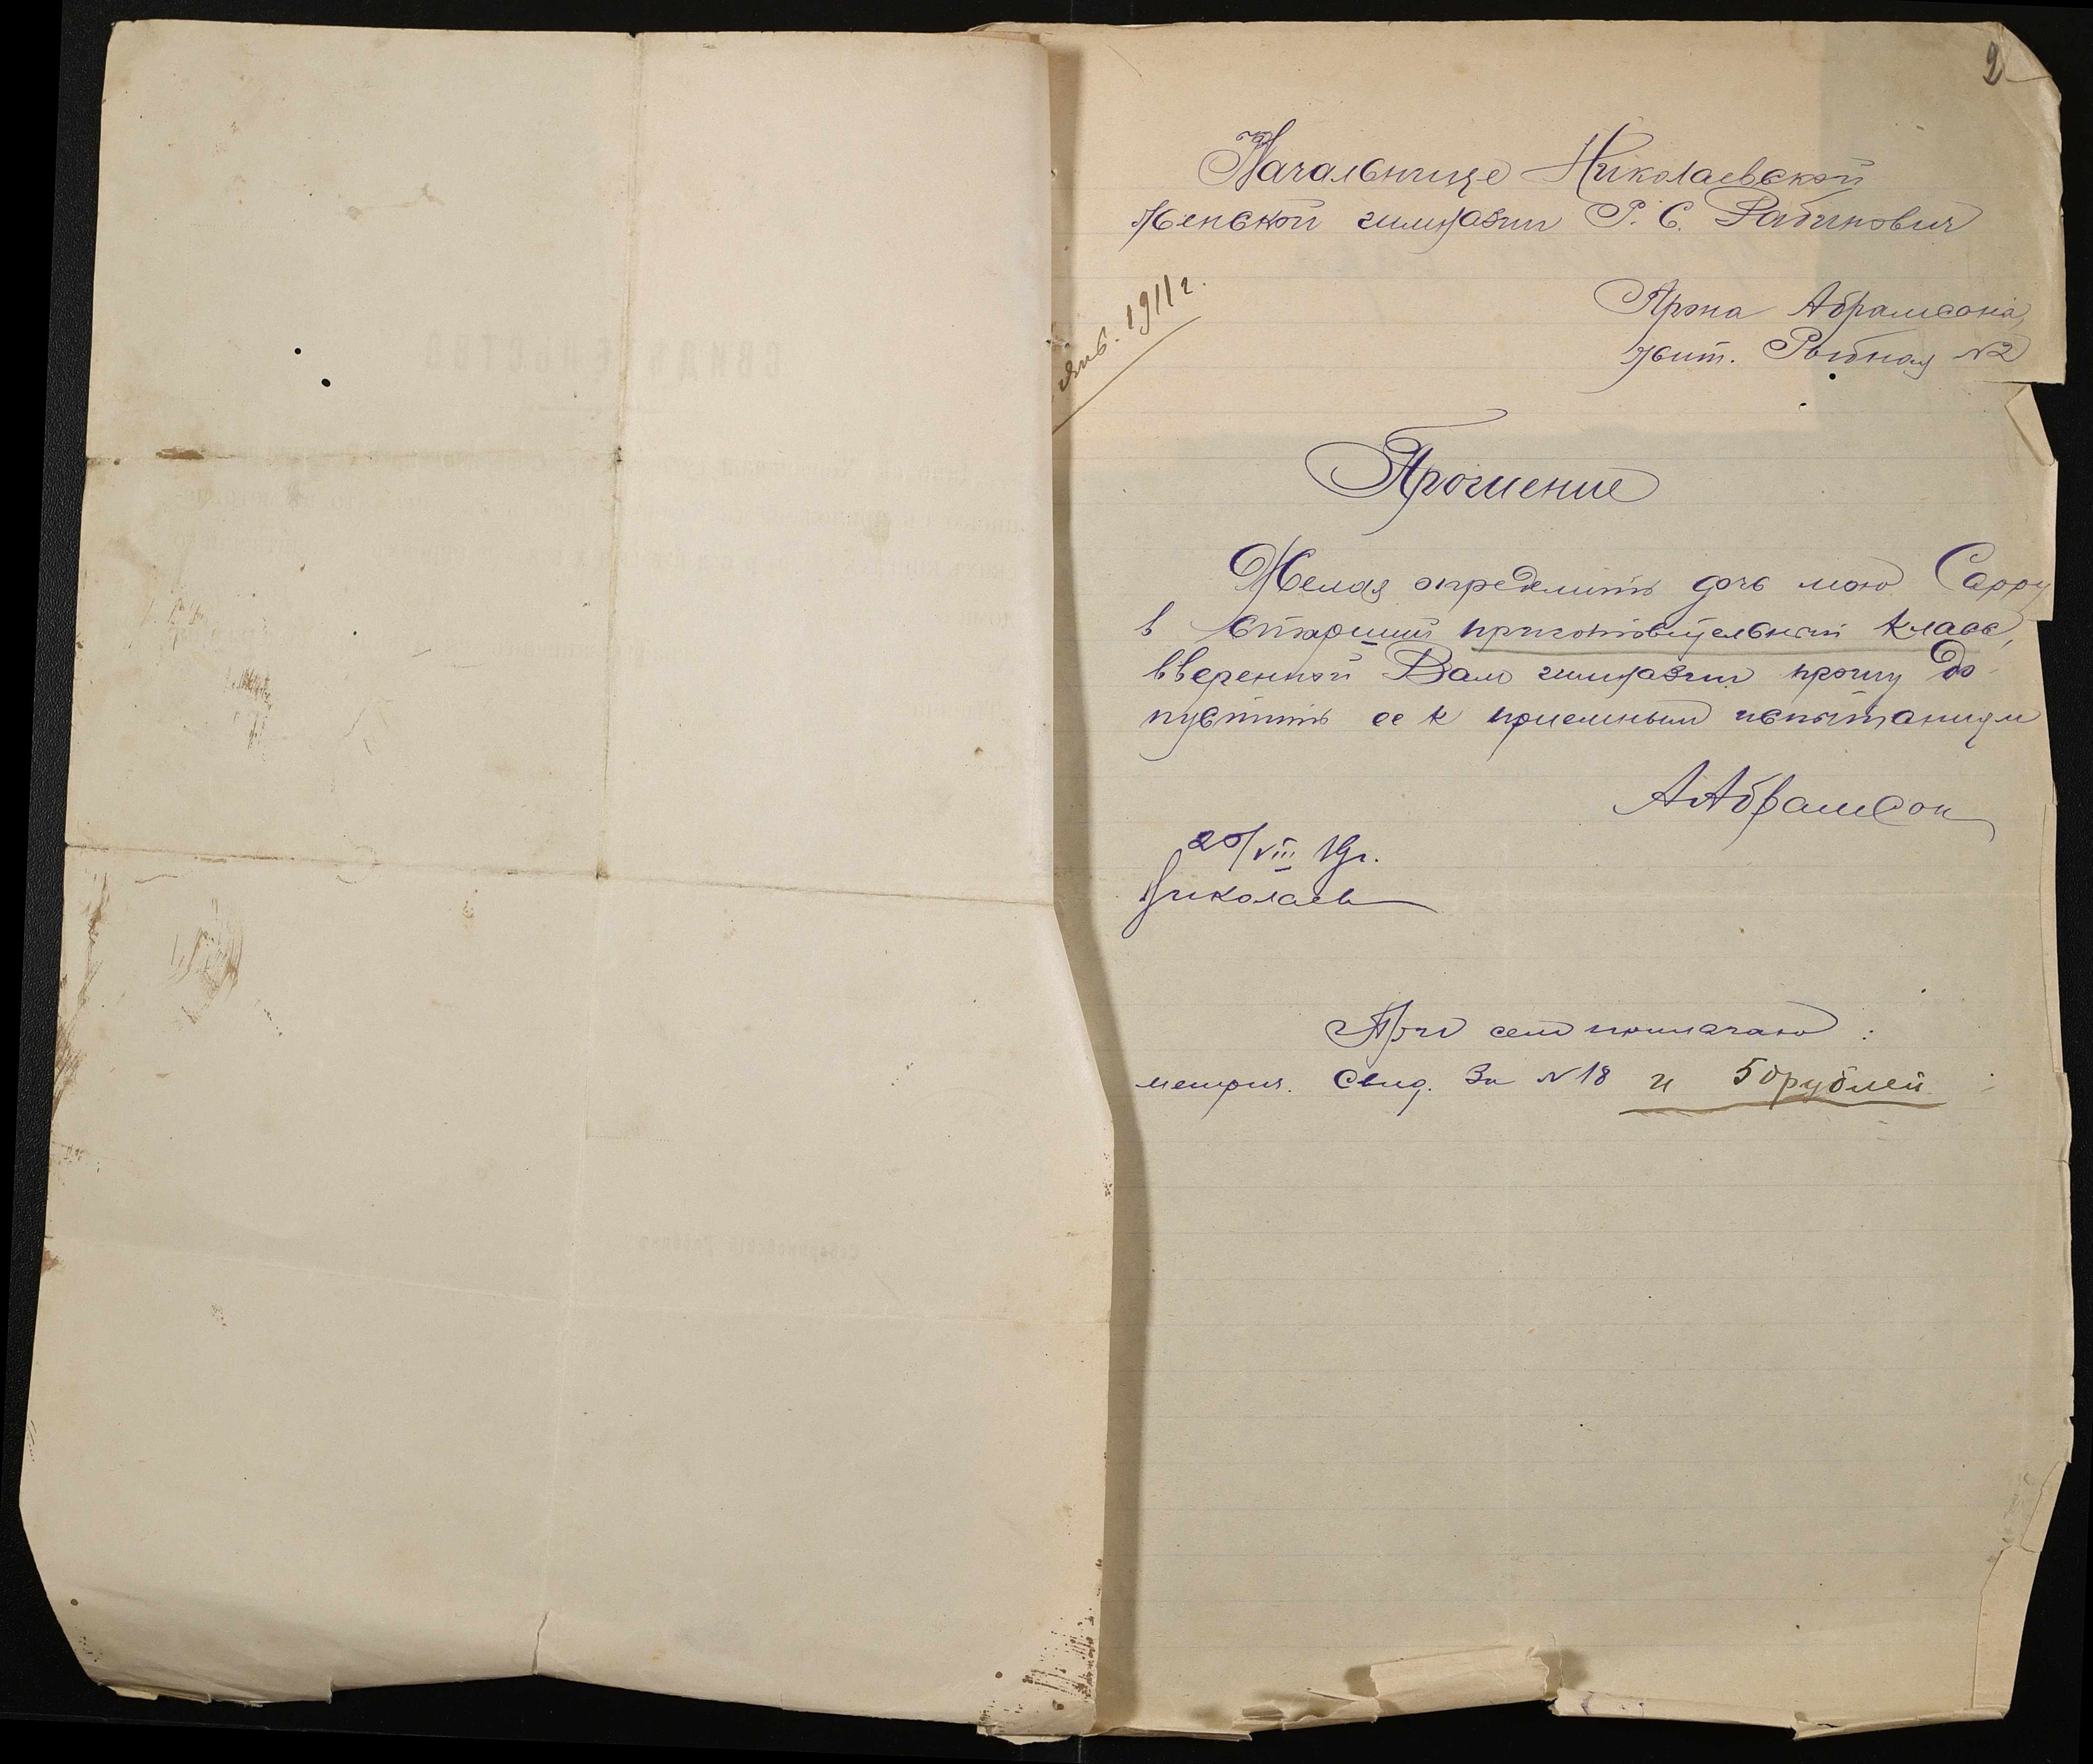 2
Начальнице Николаевской
женской гимназии Р. С. Рабинович
Арона Абрамсона,
жит. Рыбная №2
янв. 1911 г.
Прошение
Желая определить дочь мою Сарру
в старший приготовительный класс,
вверенной Вам гимназии прошу до-
пустить ее к приемным испытаниям
ААбрамсон
20/VIII 19г.
Николаев
При сем прилагаю :
метрич. свид. за №18 и 50рублей
СВИДѢТЕЛЬСТВО